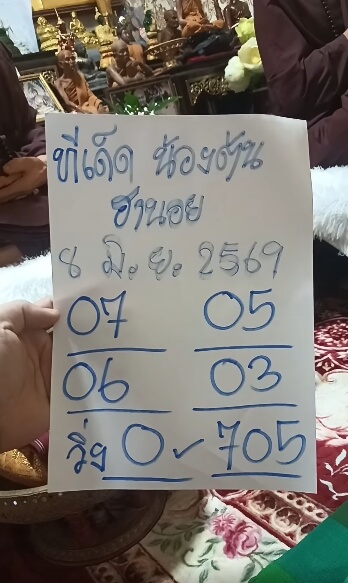 ทีเด็ด น้องด้น
ฮานอย
8 มิ.ย. 2569
07 05
06 03
วิ่ง 0 705